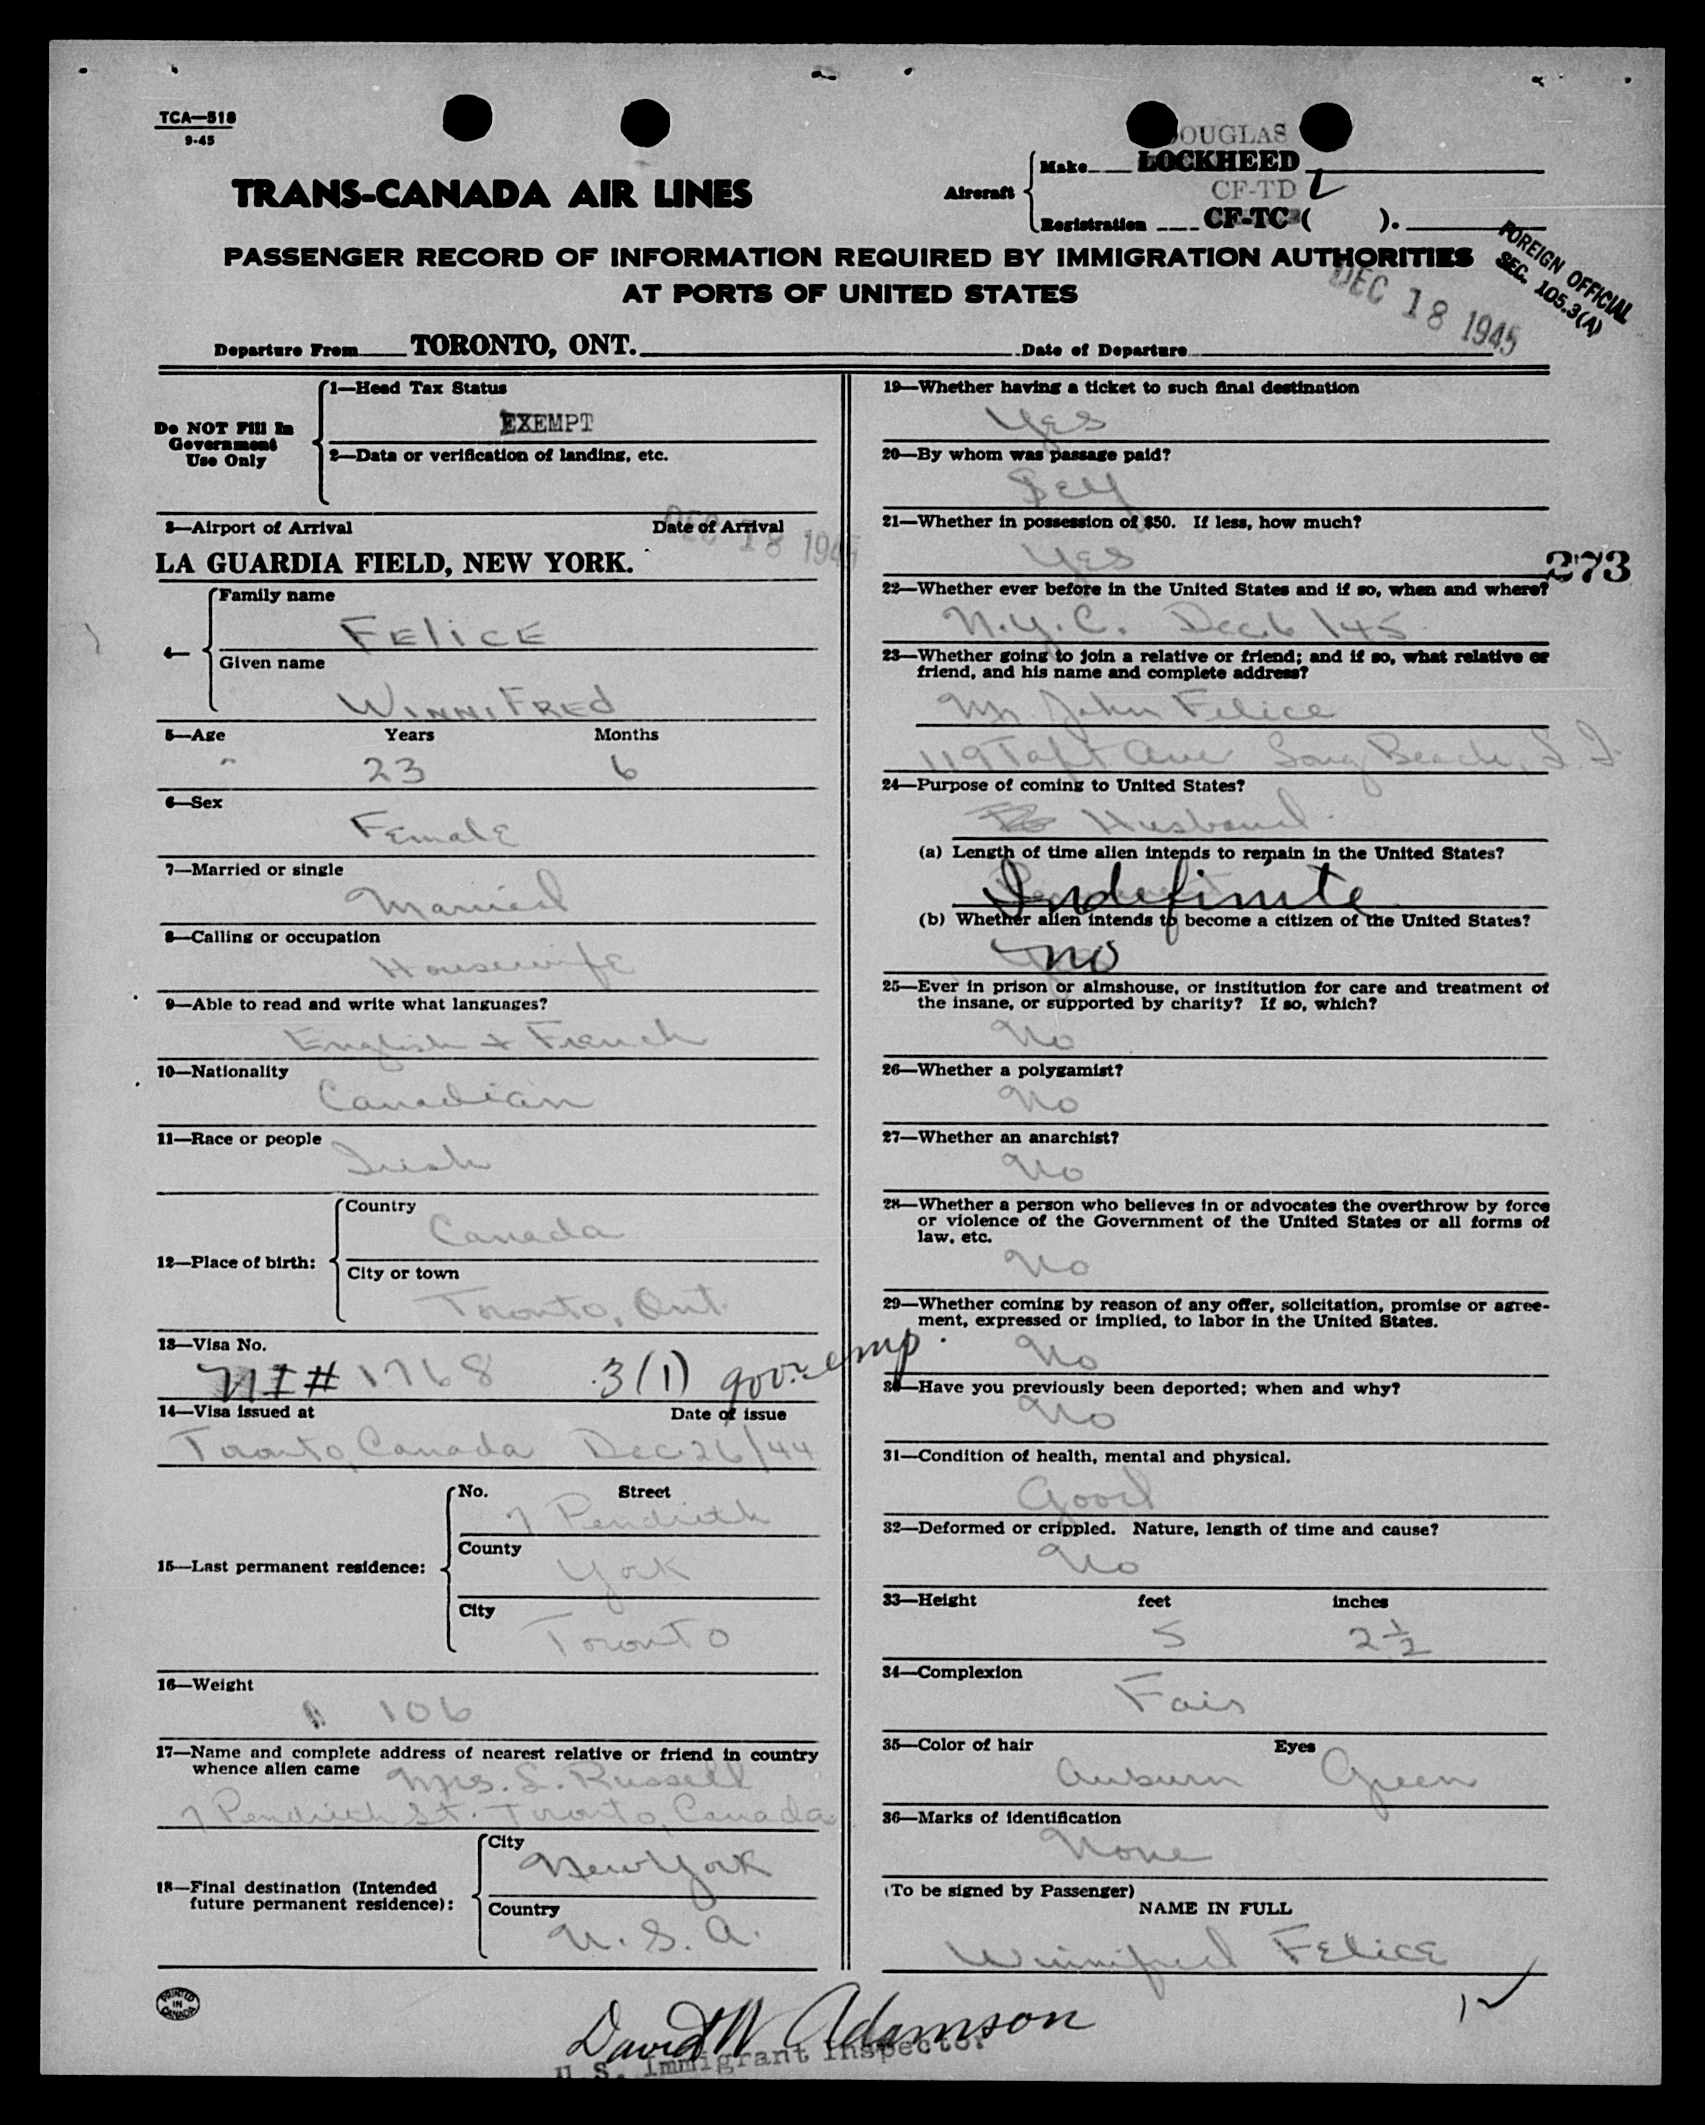 TCA—518
9-45
DOUGLAS
Aircraft
Make LOCKHEED
CF-TD L
Registration CF-TC ( ).
TRANS-CANADA AIR LINES
PASSENGER RECORD OF INFORMATION REQUIRED BY IMMIGRATION AUTHORITIES
AT PORTS OF UNITED STATES
FOREIGN OFFICIAL
SEC. 105.3(A)
DEC 18 1945
Departure From TORONTO, ONT. Date of Departure
Do NOT Fill In
Government
Use Only
1—Head Tax Status
EXEMPT
2—Data or verification of landing, etc.
3—Airport of Arrival Date of Arrival
DEC 18 1945
LA GUARDIA FIELD, NEW YORK.
4—
Family name
FELICE
Given name
WINNIFRED
5—Age Years Months
23 6
6—Sex
Female
7—Married or single
Married
8—Calling or occupation
Housewife
9—Able to read and write what languages?
English + French
10—Nationality
Canadian
11—Race or people
Irish
12—Place of birth:
Country
Canada
City or town
Toronto, Ont.
13—Visa No.
NI# 1768 3(1) gov. emp.
14—Visa issued at Date of issue
Toronto, Canada Dec 26/44
15—Last permanent residence:
No. Street
7 Pendrith
County
York
City
Toronto
16—Weight
106
17—Name and complete address of nearest relative or friend in country
whence alien came
Mrs. L. Russell
7 Pendrith St. Toronto, Canada
18—Final destination (Intended
future permanent residence):
City
New York
Country
U. S. A.
19—Whether having a ticket to such final destination
Yes
20—By whom was passage paid?
Self
21—Whether in possession of $50. If less, how much?
Yes
273
22—Whether ever before in the United States and if so, when and where?
N.Y.C. Dec 6/45
23—Whether going to join a relative or friend; and if so, what relative or
friend, and his name and complete address?
Mr John Felice
119 Taft Ave Long Beach, L I.
24—Purpose of coming to United States?
Husband
(a) Length of time alien intends to remain in the United States?
Indefinite
(b) Whether alien intends to become a citizen of the United States?
no
25—Ever in prison or almshouse, or institution for care and treatment of
the insane, or supported by charity? If so, which?
No
26—Whether a polygamist?
No
27—Whether an anarchist?
No
28—Whether a person who believes in or advocates the overthrow by force
or violence of the Government of the United States or all forms of
law, etc.
No
29—Whether coming by reason of any offer, solicitation, promise or agree-
ment, expressed or implied, to labor in the United States.
No
30—Have you previously been deported; when and why?
No
31—Condition of health, mental and physical.
Good
32—Deformed or crippled. Nature, length of time and cause?
No
33—Height feet inches
5 2 1/2
34—Complexion
Fair
35—Color of hair Eyes
Auburn Green
36—Marks of identification
None
(To be signed by Passenger)
NAME IN FULL
Winnifred Felice
PRINTED
IN
CANADA
David W Adamson
U. S. Immigrant Inspector